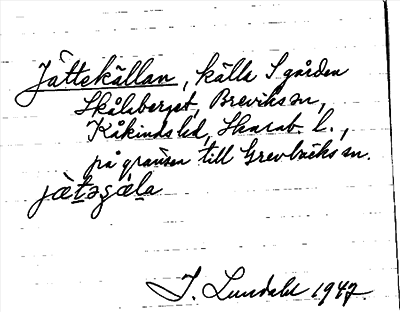 Jättekällan, källa S gården
Skålaberget, Breviks sn,
Kåkinds hd, Skarab. l.,
på gränsen till Grevbäcks sn.
J. Lundahl 1947.